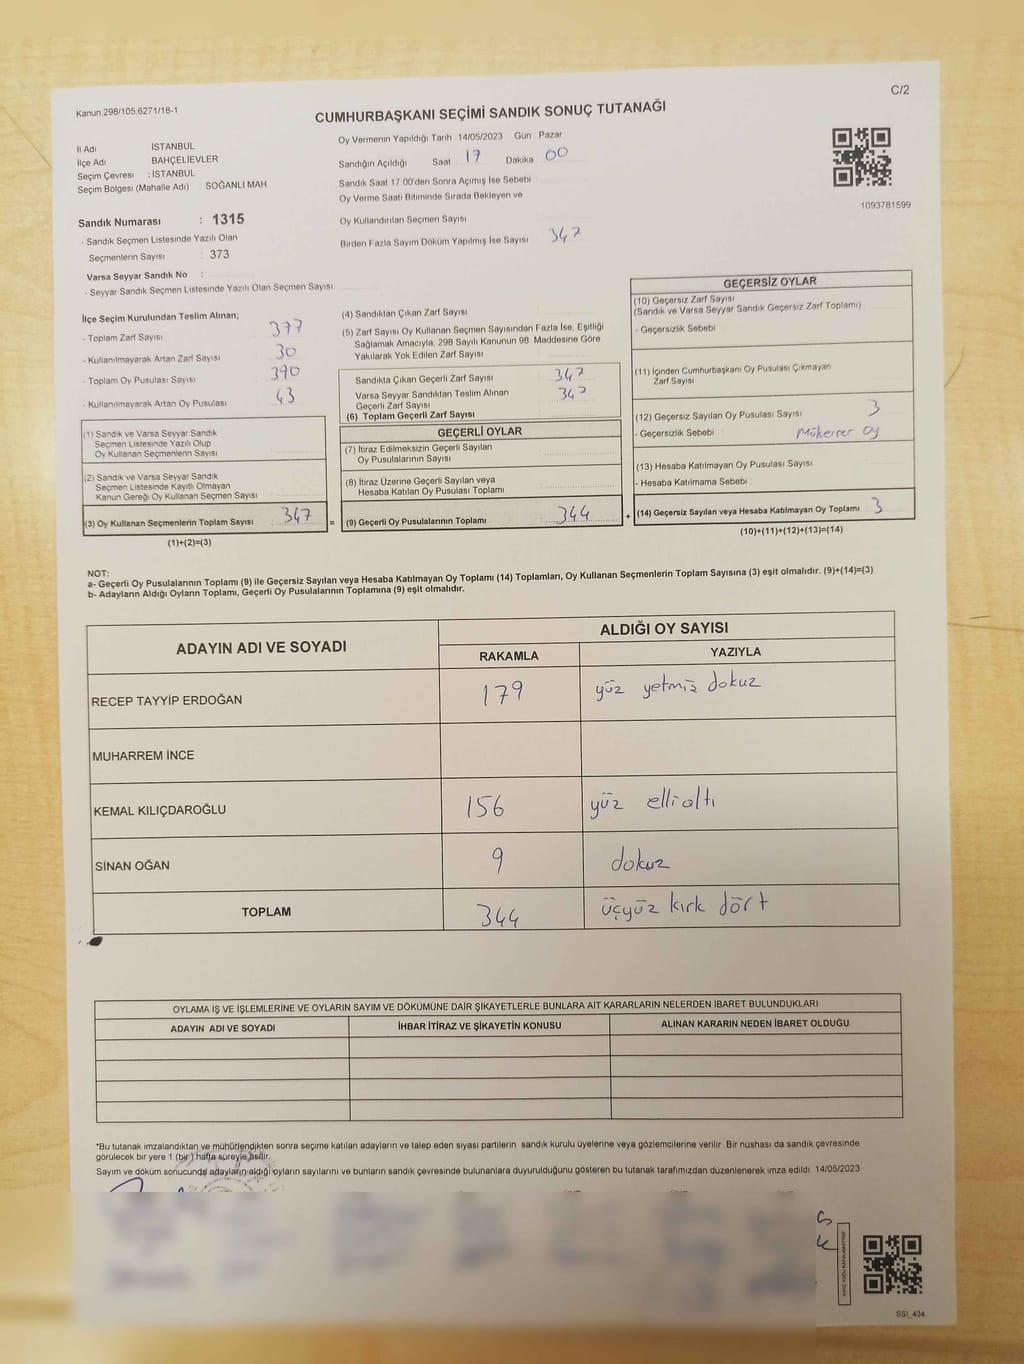 C/2
Kanun.298/105;6271/18-1
CUMHURBAŞKANI SEÇİMİ SANDIK SONUÇ TUTANAĞI
İl Adı İSTANBUL
İlçe Adı BAHÇELİEVLER
Seçim Çevresi : İSTANBUL
Seçim Bölgesi (Mahalle Adı) : SOĞANLI MAH
Sandık Numarası : 1315
- Sandık Seçmen Listesinde Yazılı Olan
Seçmenlerin Sayısı : 373
Varsa Seyyar Sandık No :
- Seyyar Sandık Seçmen Listesinde Yazılı Olan Seçmen Sayısı
Oy Vermenin Yapıldığı Tarih 14/05/2023 Gün Pazar
Sandığın Açıldığı Saat 17 Dakika 00
Sandık Saat 17 00'den Sonra Açımış İse Sebebi
Oy Verme Saati Bitiminde Sırada Bekleyen ve
Oy Kullandırılan Seçmen Sayısı
Birden Fazla Sayım Döküm Yapılmış İse Sayısı 347
1093781599
İlçe Seçim Kurulundan Teslim Alınan;
- Toplam Zarf Sayısı 377
- Kullanılmayarak Artan Zarf Sayısı 30
- Toplam Oy Pusulası Sayısı 390
- Kullanılmayarak Artan Oy Pusulası 43
(1) Sandık ve Varsa Seyyar Sandık
Seçmen Listesinde Yazılı Olup
Oy Kullanan Seçmenlerin Sayısı
(2) Sandık ve Varsa Seyyar Sandık
Seçmen Listesinde Kayıtlı Olmayan
Kanun Gereği Oy Kullanan Seçmen Sayısı
(3) Oy Kullanan Seçmenlerin Toplam Sayısı 347 =
(1)+(2)=(3)
(4) Sandıktan Çıkan Zarf Sayısı
(5) Zarf Sayısı Oy Kullanan Seçmen Sayısından Fazla İse, Eşitliği
Sağlamak Amacıyla, 298 Sayılı Kanunun 98. Maddesine Göre
Yakılarak Yok Edilen Zarf Sayısı
Sandıkta Çıkan Geçerli Zarf Sayısı 347
Varsa Seyyar Sandıktan Teslim Alınan 347
Geçerli Zarf Sayısı
(6) Toplam Geçerli Zarf Sayısı
GEÇERLİ OYLAR
(7) İtiraz Edilmeksizin Geçerli Sayılan
Oy Pusulalarının Sayısı
(8) İtiraz Üzerine Geçerli Sayılan veya
Hesaba Katılan Oy Pusulası Toplamı
(9) Geçerli Oy Pusulalarının Toplamı 344 +
GEÇERSİZ OYLAR
(10) Geçersiz Zarf Sayısı
(Sandık ve Varsa Seyyar Sandık Geçersiz Zarf Toplamı)
- Geçersizlik Sebebi
(11) İçinden Cumhurbaşkanı Oy Pusulası Çıkmayan
Zarf Sayısı
(12) Geçersiz Sayılan Oy Pusulası Sayısı 3
- Geçersizlik Sebebi Mükerrer Oy
(13) Hesaba Katılmayan Oy Pusulası Sayısı
- Hesaba Katılmama Sebebi
(14) Geçersiz Sayılan veya Hesaba Katılmayan Oy Toplamı 3
(10)+(11)+(12)+(13)=(14)
NOT:
a- Geçerli Oy Pusulalarının Toplamı (9) ile Geçersiz Sayılan veya Hesaba Katılmayan Oy Toplamı (14) Toplamları, Oy Kullanan Seçmenlerin Toplam Sayısına (3) eşit olmalıdır. (9)+(14)=(3)
b- Adayların Aldığı Oyların Toplamı, Geçerli Oy Pusulalarının Toplamına (9) eşit olmalıdır.
ADAYIN ADI VE SOYADI ALDIĞI OY SAYISI
RAKAMLA YAZIYLA
RECEP TAYYİP ERDOĞAN 179 yüz yetmiz dokuz
MUHARREM İNCE
KEMAL KILIÇDAROĞLU 156 yüz elli altı
SİNAN OĞAN 9 dokuz
TOPLAM 344 üçyüz kırk dört
OYLAMA İŞ VE İŞLEMLERİNE VE OYLARIN SAYIM VE DÖKÜMÜNE DAİR ŞİKAYETLERLE BUNLARA AİT KARARLARIN NELERDEN İBARET BULUNDUKLARI
ADAYIN ADI VE SOYADI İHBAR İTİRAZ VE ŞİKAYETİN KONUSU ALINAN KARARIN NEDEN İBARET OLDUĞU
*Bu tutanak imzalandıktan ve mühürlendikten sonra seçime katılan adayların ve talep eden siyasi partilerin sandık kurulu üyelerine veya gözlemcilerine verilir. Bir nushası da sandık çevresinde
görülecek bir yere 1 (bir) hafta süreyle asılır.
Sayım ve döküm sonucunda adayların aldığı oyların sayılarını ve bunların sandık çevresinde bulunanlara duyurulduğunu gösteren bu tutanak tarafımızdan düzenlenerek imza edildi 14/05/2023
SS1_404